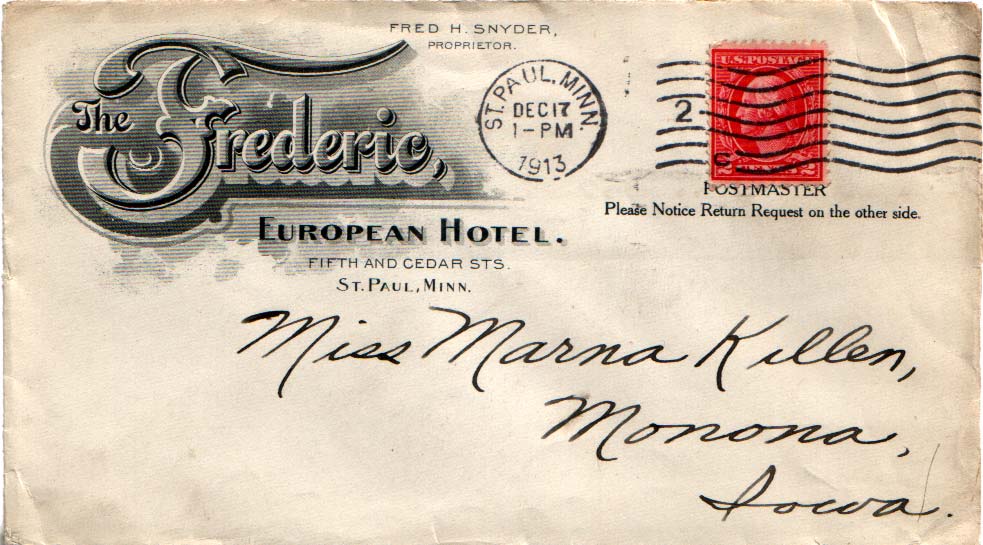 FRED H. SNYDER,
PROPRIETOR.
The Frederic,
EUROPEAN HOTEL.
FIFTH AND CEDAR STS.
ST. PAUL, MINN.
ST. PAUL, MINN.
DEC 17
1-PM
1913
2
U.S. POSTAGE
2 2
POSTMASTER
Please Notice Return Request on the other side.
Miss Marna Killen,
Monona,
Iowa.